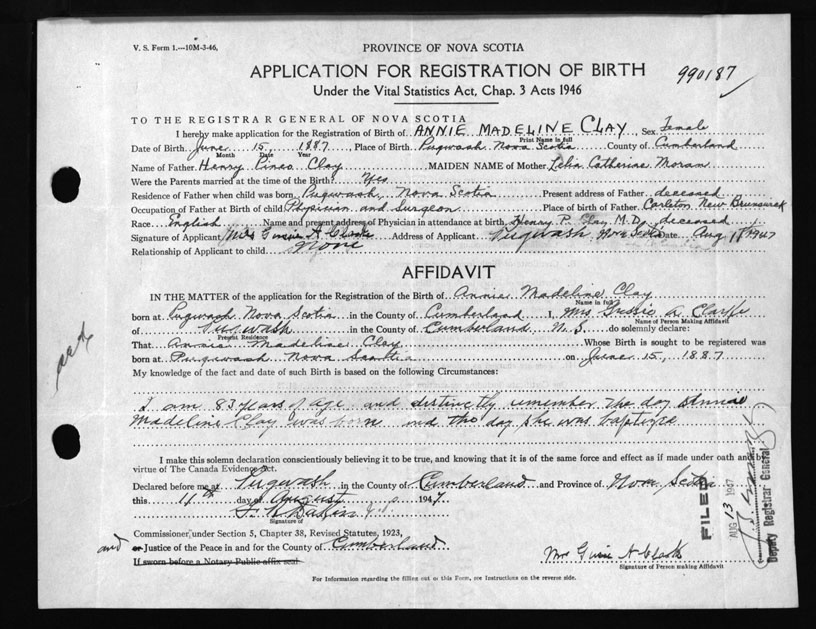 V. S. Form 1.—10M-3-46.
PROVINCE OF NOVA SCOTIA
APPLICATION FOR REGISTRATION OF BIRTH
990187
Under the Vital Statistics Act, Chap. 3 Acts 1946
TO THE REGISTRAR GENERAL OF NOVA SCOTIA
I hereby make application for the Registration of Birth of ANNIE MADELINE CLAY Sex Female
Print Name in full
Date of Birth June 15, 1887 Place of Birth Pugwash Nova Scotia County of Cumberland
Month Date Year
Name of Father Henry Pineo Clay MAIDEN NAME of Mother Lelia Catherine Moran
Were the Parents married at the time of the Birth? Yes
Residence of Father when child was born Pugwash, Nova Scotia Present address of Father deceased
Occupation of Father at Birth of child Physician and Surgeon Place of birth of Father Carlton New Brunswick
Race English Name and present address of Physician in attendance at birth Henry P. Clay M.D. deceased
Signature of Applicant Mrs A Clarke Address of Applicant Pugwash, Nova Scotia Date Aug 11 1947
Relationship of Applicant to child None
AFFIDAVIT
IN THE MATTER of the application for the Registration of the Birth of Annie Madeline Clay
Name in full
born at Pugwash Nova Scotia in the County of Cumberland I, Mrs Gussie A. Clarke
Name of Person Making Affidavit
of Pugwash in the County of Cumberland N. S. do solemnly declare:
Present Residence
That Annie Madeline Clay Whose Birth is sought to be registered was
born at Purgwash Nova Scottia on June 15, 1887
My knowledge of the fact and date of such Birth is based on the following Circumstances:
I am 83 years of age and distinctly remember the day Annie
Madeline Clay was born and the day she was
I make this solemn declaration conscientiously believing it to be true, and knowing that it is of the same force and effect as if made under oath and by
virtue of The Canada Evidence Act.
Declared before me at Pugwash in the County of Cumberland and Province of Nova Scotia
this 11th day of August 1947
Signature of
Commissioner, under Section 5, Chapter 38, Revised Statutes, 1923,
and or Justice of the Peace in and for the County of Cumberland
If sworn before a Notary Public affix seal
Mrs A Clarke
Signature of Person making Affidavit
For Information regarding the filling out of this Form, see Instructions on the reverse side.
FILED
AUG 13 1947
Deputy Registrar General